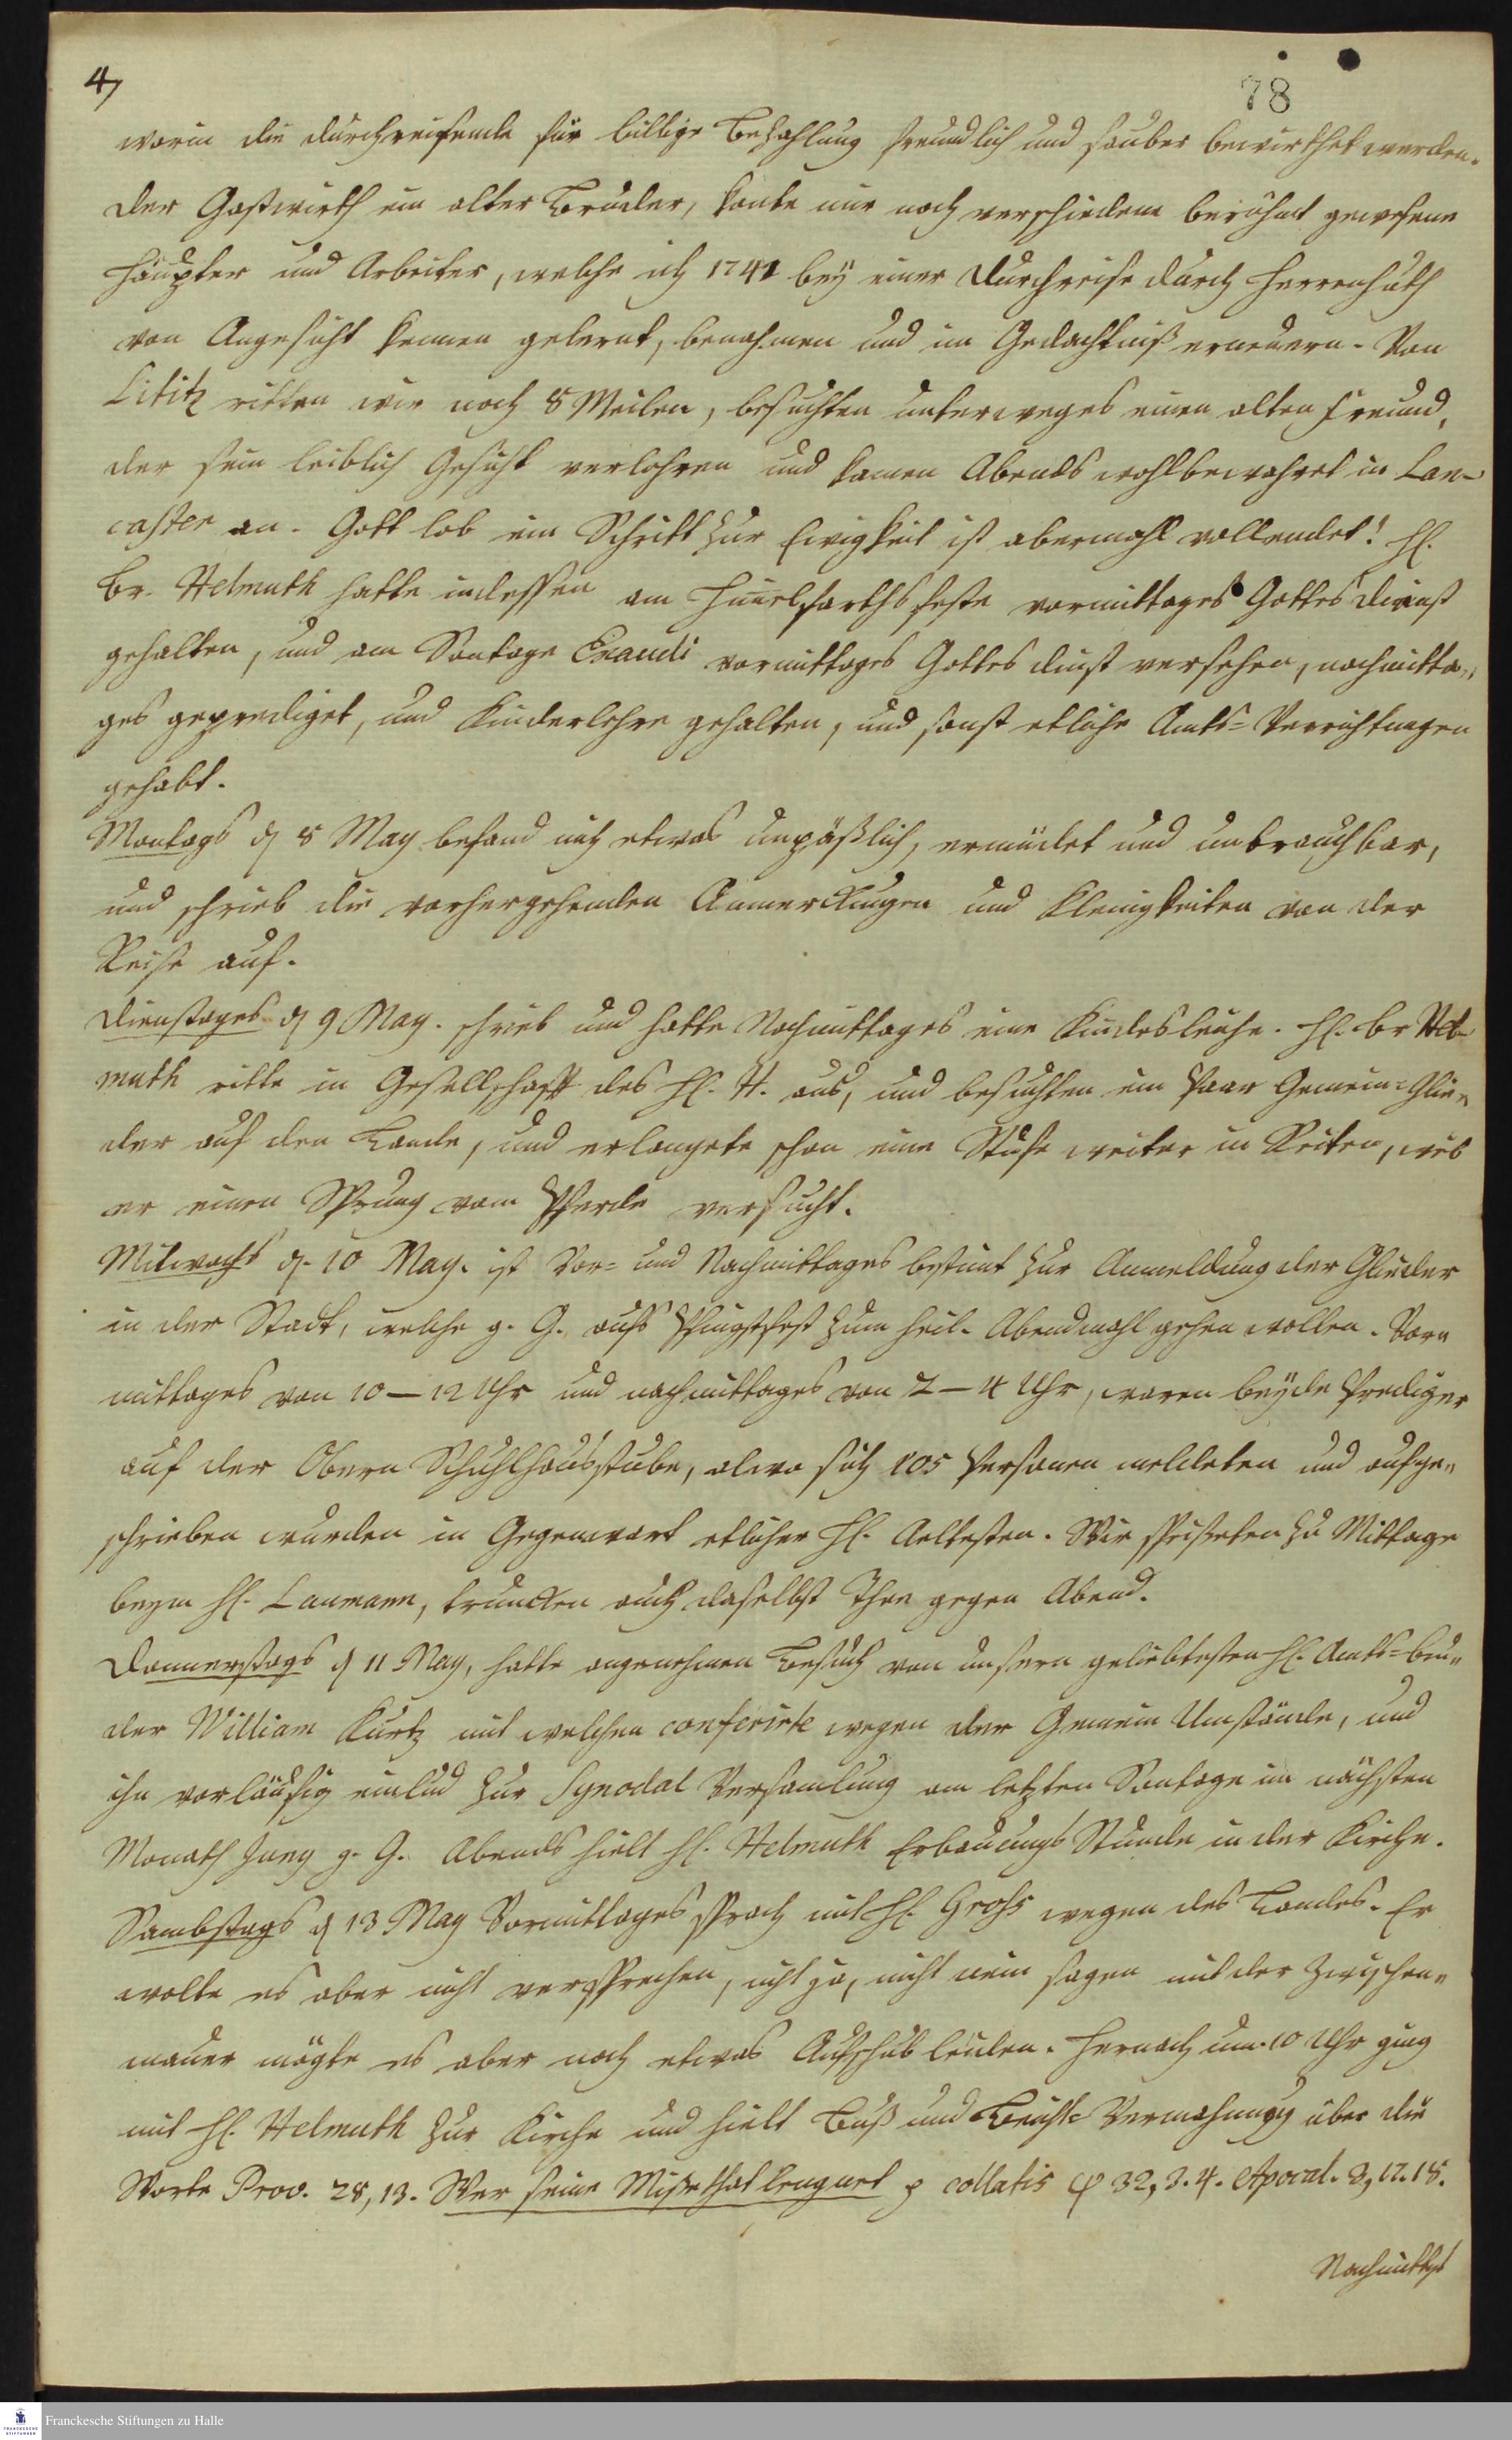 4,
78
worin die durchreisende für billige Bezahlung freundlich und sauber bewirthet werden.
Der Gastwirth ein alter Bruder, konte mir noch verschiedene berühmt gewesene
Häupter und Arbeiter, welche ich 1741 bey einer Durchreise durch Herrenhuth
von Angesicht kennen gelernt, benahmen und im Gedächtniß erneuern. Von
Lititz ritten wir noch 8 Meilen, besuchten unterweges einen alten Freund,
der sein leiblich Gesicht verlohren und kamen Abends wohlbewahret in Lan-
caster an. Gott lob ein Schritt zur Ewigkeit ist abermahl vollendet! H.
Br. Helmuth hatte indessen am Himelfarths feste vormittages Gottes dienst
gehalten, und am Sontage Exaudi vormittages Gottes dinst versehen, nachmitta„
ges geprediget, und Kinderlehre gehalten, und sonst etliche Amts-Verrichtungen
gehabt.
Montags d 8 May befand mich etwas unpäßlich, ermüdet und unbrauchbar,
und schrieb die vorhergehenden Anmerckungen und Kleinigkeiten von der
Reise auf.
Dienstages d 9 May. schrieb und hatte Nachmittages eine Kindesleiche. H. Br Hel-
muth ritte in Gesellschafft des H. H. aus, und besuchten ein Paar Gemein-Glie„
der auf den Lande, und erlangete schon eine Stufe weiter in Reiten, weil
er einen Sprung vom Pferde versucht.
Mitwochs d. 10 May. ist Vor- und Nachmittages bestimt zur Anmeldung der Glieder
in der Stadt, welche g. G. aufs Pfingstfest zum heil. Abendmahl gehen wollen. Vor„
mittages von 10–12 Uhr und nachmittages von 2–4 Uhr, waren beyde Prediger
auf der Obern Schuhlhausstube, alwo sich 105 Personen meldeten und aufge„
schrieben wurden in Gegenwart etlicher H. Aeltesten. Wir speiseten zu Mittage
beym H. Laumann, truncken auch daselbst Thee gegen Abend.
Donnerstags d 11 May, hatte angenehmen Besuch von unsern geliebtesten H. Amts-bru„
der William Kurtz mit welchen conferirte wegen der Gemein Umstände, und
ihn vorläufig einlud zur Synodal Versamlung am letzten Sontage im nächsten
Monath Juny g. G. Abends hielt H. Helmuth Erbauungs Stunde in der Kirche.
Sambstags d 13 May Vormittages sprach mit H. Grohs wegen des Landes. Er
wolte es aber nicht versprechen, nicht ja, nicht nein sagen mit der Zwischen„
mauer mögte es aber noch etwas Aufschub leiden. Hernach um 10 Uhr ging
mit H. Helmuth zur Kirche und hielt Buß und Beicht-Vermahnung über die
Worte Prov. 28, 13. Wer seine Missethat leugnet p collatis ψ 32, 3. 4. Apocal. 3, 17. 18.
Nachmittags
Franckesche Stiftungen zu Halle